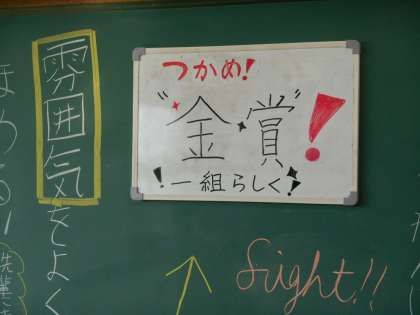 つかめ!
"金賞"!
!一組らしく!
雰囲気をよく
ほめる!
先輩
fight!!